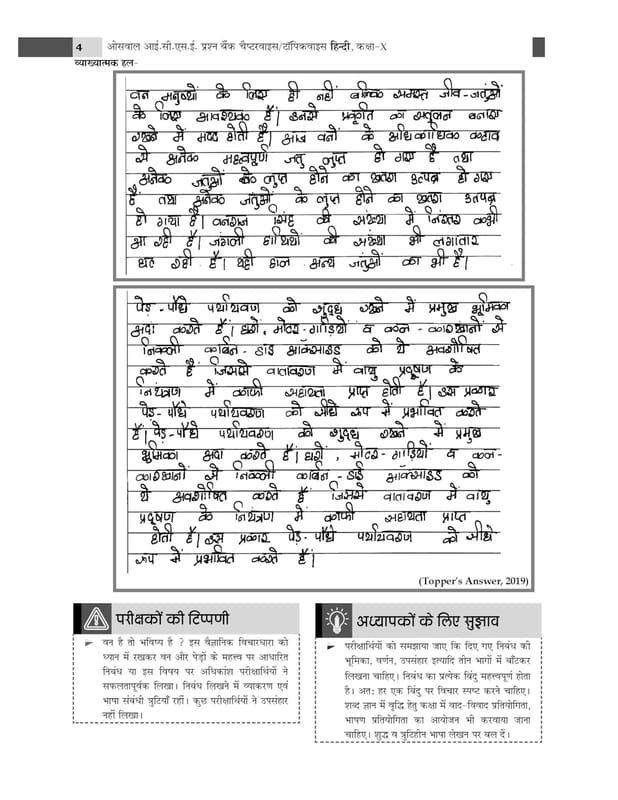 4 ओसवाल आई.सी.एस.ई. प्रश्न बैंक चैप्टरवाइस/टॉपिकवाइस हिन्दी, कक्षा-X
व्याख्यात्मक हल-
वन मनुष्यों के लिए ही नहीं बल्कि समस्त जीव-जंतुओं
के लिए आवश्यक हैं। इनसे प्रकृति का संतुलन बनाए
रखने में मदद होती है। आज वनों के अधिकाधिक कटाव
से अनेक महत्वपूर्ण जंतु लुप्त हो गए हैं तथा
अनेक जंतुओं के लुप्त होने का खतरा उत्पन्न हो गया
है तथा अनेक जंतुओं के लुप्त होने का खतरा उत्पन्न
हो गया है। वनराज सिंह की संख्या में निरंतर कमी
आ रही है। जंगली हाथियों की संख्या भी लगातार
घट रही है। यही हाल अन्य जंतुओं का भी है।
पेड़-पौधे पर्यावरण को शुद्ध रखने में प्रमुख भूमिका
अदा करते हैं। घरों, मोटर-गाड़ियों व कल-कारखानों से
निकली कार्बन-डाई ऑक्साइड को ये अवशोषित
करते हैं जिससे वातावरण में वायु प्रदूषण के
नियंत्रण में काफी सहायता प्राप्त होती है। इस प्रकार
पेड़-पौधे पर्यावरण को सीधे रूप में प्रभावित करते
हैं। पेड़-पौधे पर्यावरण को शुद्ध रखने में प्रमुख
भूमिका अदा करते हैं। घरों, मोटर-गाड़ियों व कल-
कारखानों से निकली कार्बन-डाई ऑक्साइड को
ये अवशोषित करते हैं जिससे वातावरण में वायु
प्रदूषण के नियंत्रण में काफी सहायता प्राप्त
होती है। इस प्रकार पेड़-पौधे पर्यावरण को सीधे
रूप में प्रभावित करते हैं।
(Topper's Answer, 2019)
परीक्षकों की टिप्पणी
वन है तो भविष्य है ? इस वैज्ञानिक विचारधारा को
ध्यान में रखकर वन और पेड़ों के महत्त्व पर आधारित
निबंध या इस विषय पर अधिकांश परीक्षार्थियों ने
सफलतापूर्वक लिखा। निबंध लिखने में व्याकरण एवं
भाषा संबंधी त्रुटियाँ रहीं। कुछ परीक्षार्थियों ने उपसंहार
नहीं लिखा।
अध्यापकों के लिए सुझाव
परीक्षार्थियों को समझाया जाए कि दिए गए निबंध को
भूमिका, वर्णन, उपसंहार इत्यादि तीन भागों में बाँटकर
लिखना चाहिए। निबंध का प्रत्येक बिंदु महत्त्वपूर्ण होता
है। अतः हर एक बिंदु पर विचार स्पष्ट करने चाहिए।
शब्द ज्ञान में वृद्धि हेतु कक्षा में वाद-विवाद प्रतियोगिता,
भाषण प्रतियोगिता का आयोजन भी करवाया जाना
चाहिए। शुद्ध व त्रुटिहीन भाषा लेखन पर बल दें।